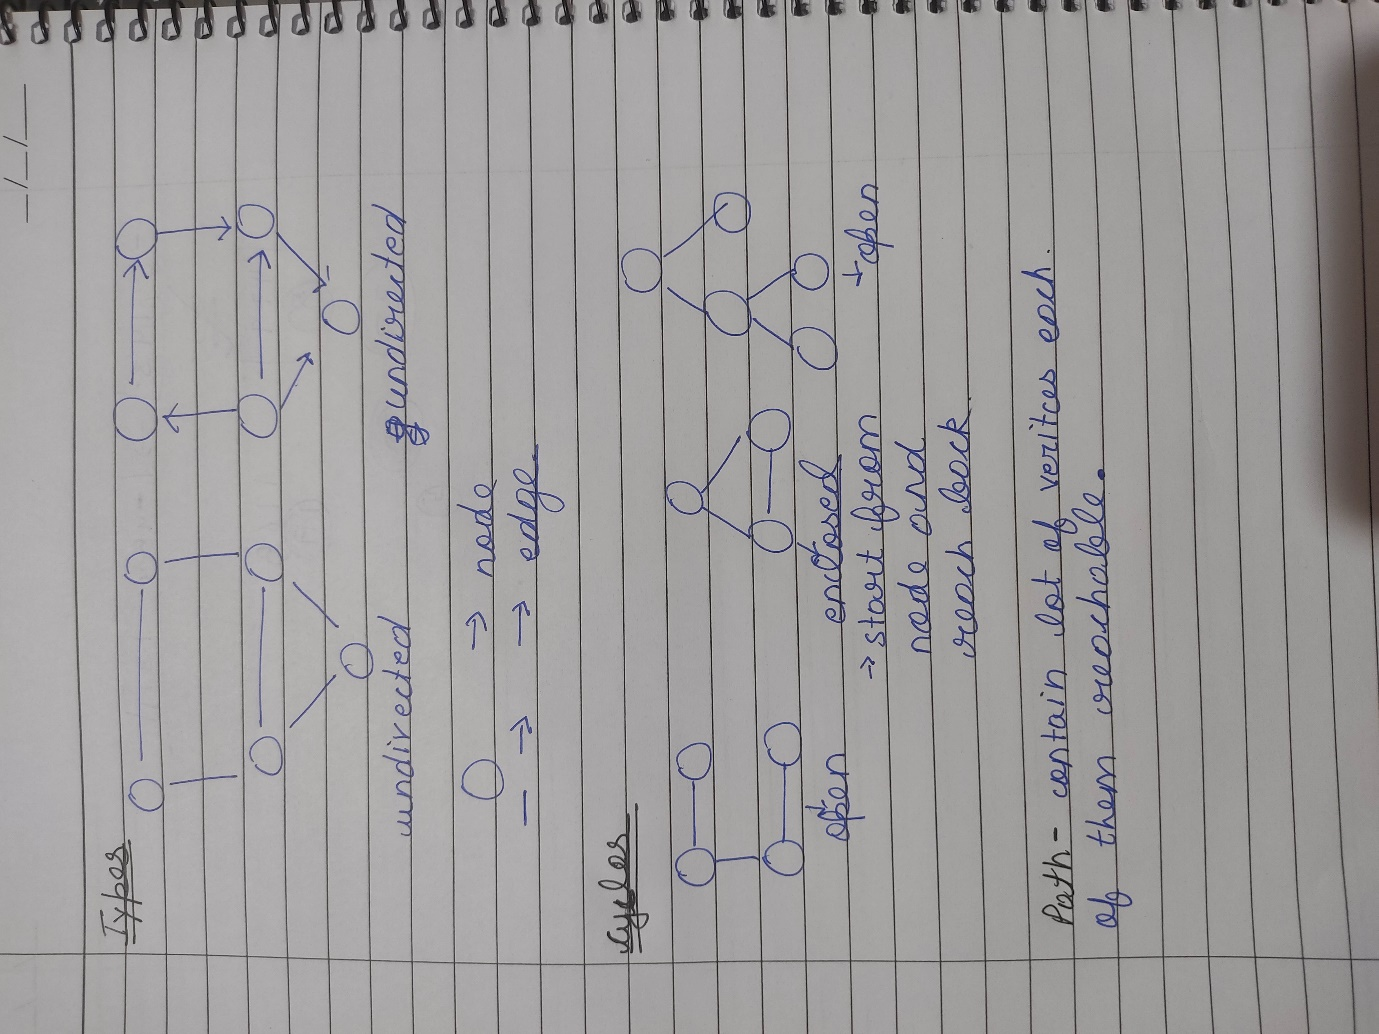 Types
undirected
undirected
→ node
- → → edge.
Cycles
open
enclosed
→ start from
node and
reach back
→ open
Path - contain lot of veritces each.
of them reachable.